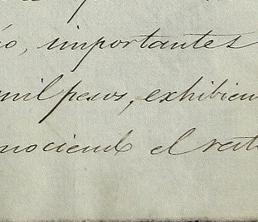 io, importantes
mil pesos, exhibien
nociendo el rest